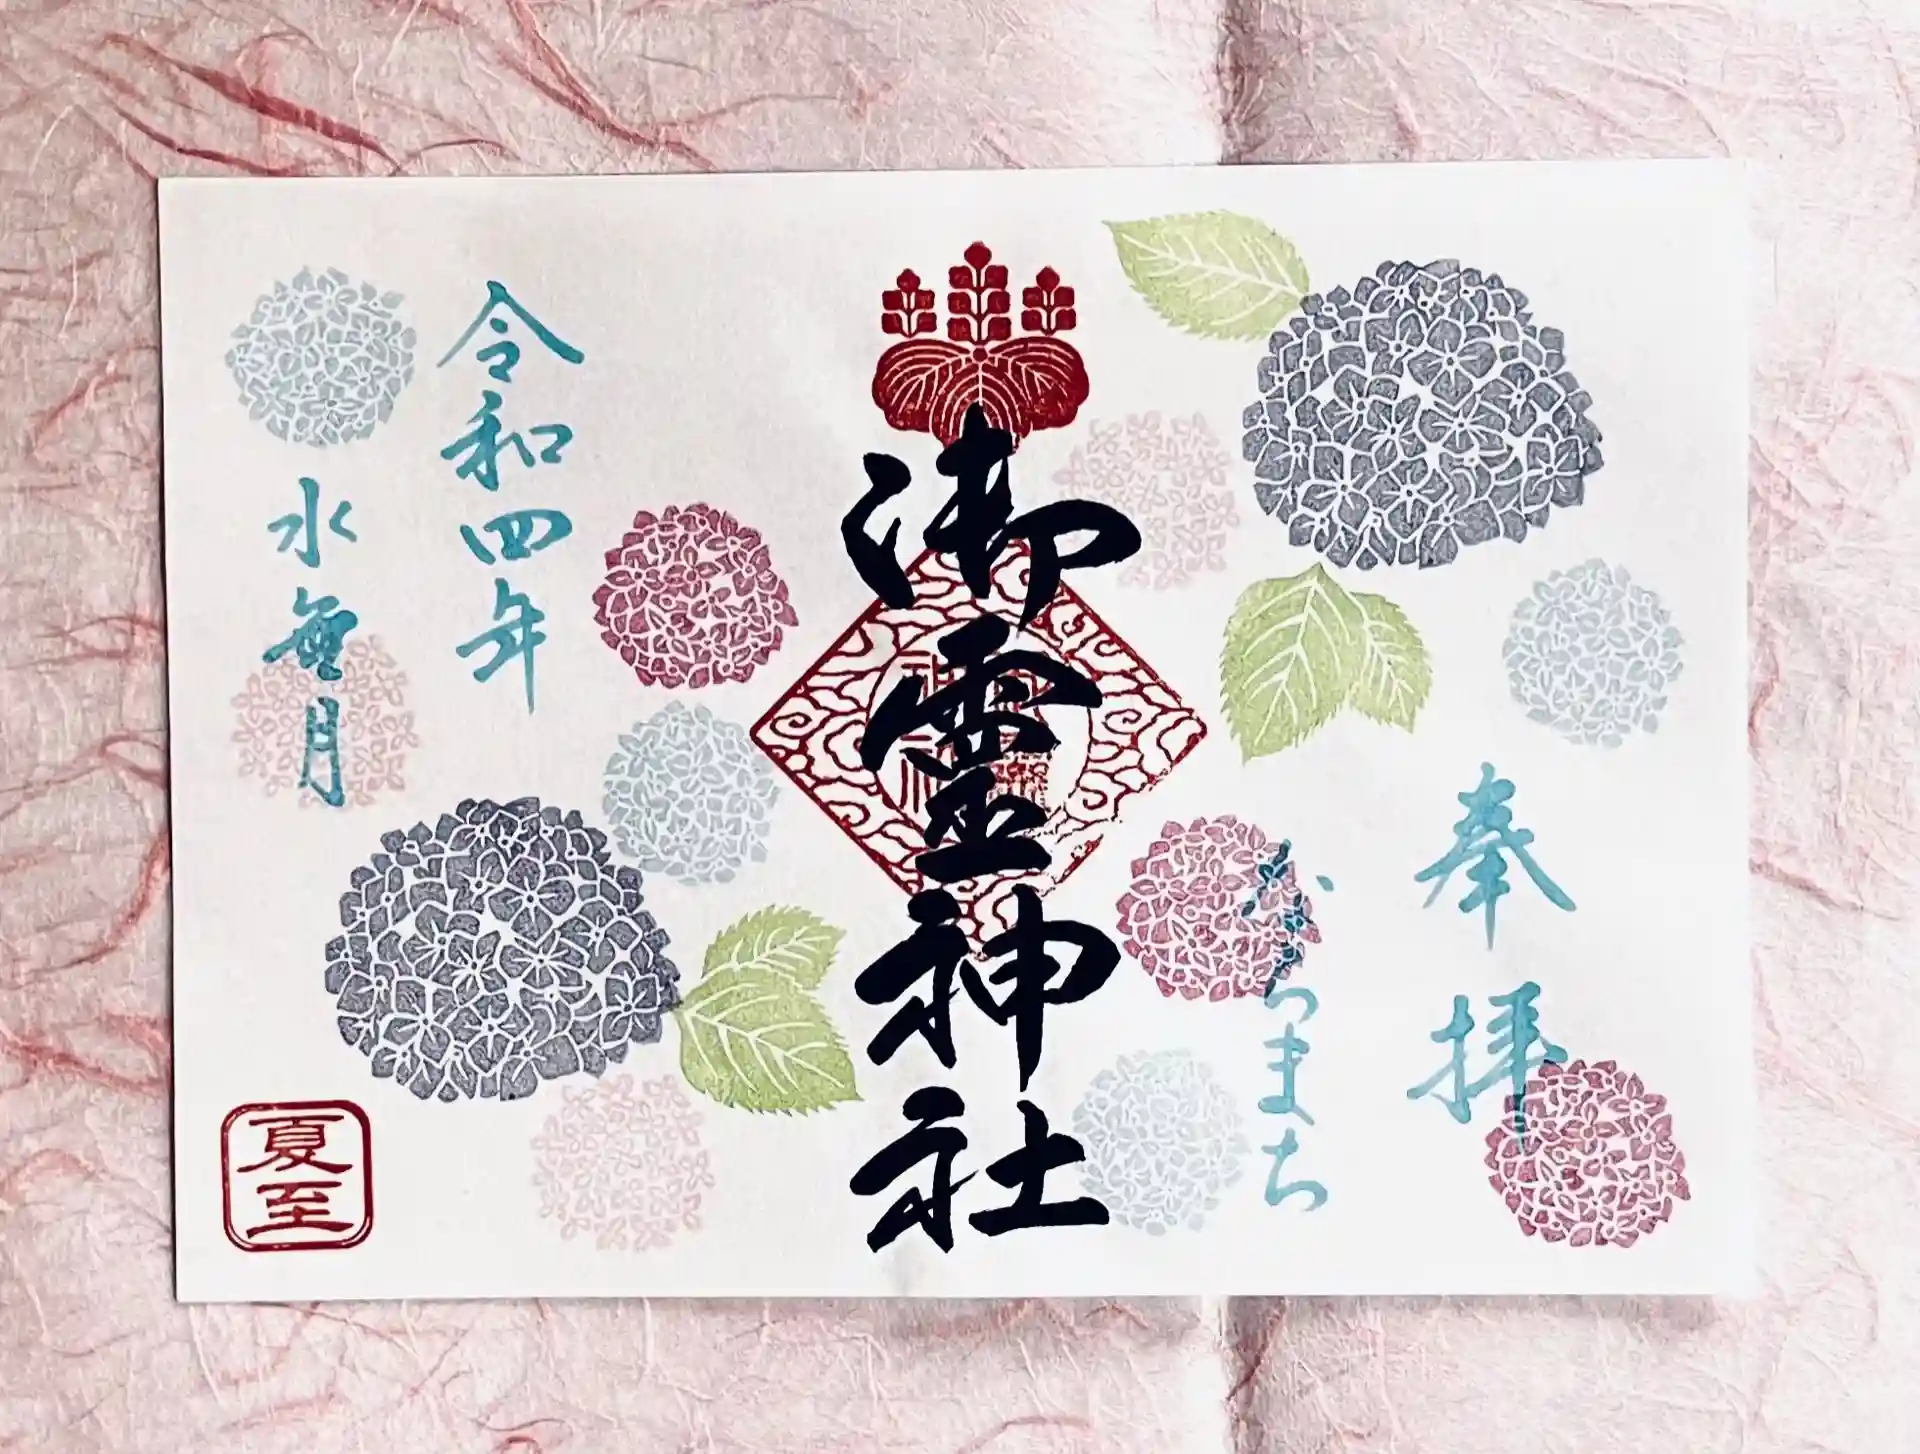 奉拝
ならまち
御霊神社
令和四年
水無月
夏至